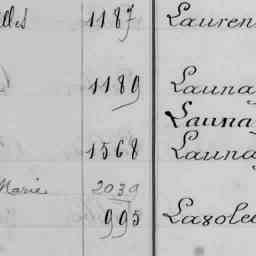 lles 1187 Lauren
1189 Launay
Launay
1568 Launay
Marie 2039
995 Lazole